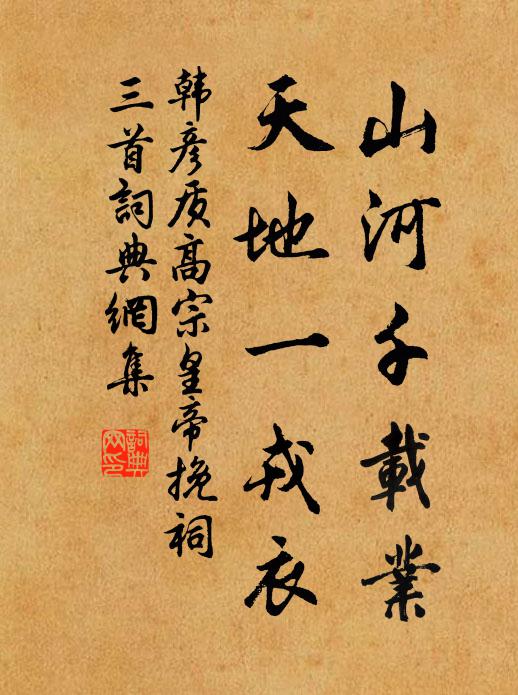 山河千載業
天地一戎衣
韩彦质高宗皇帝挽祠
三首詞典網集
詞典網印